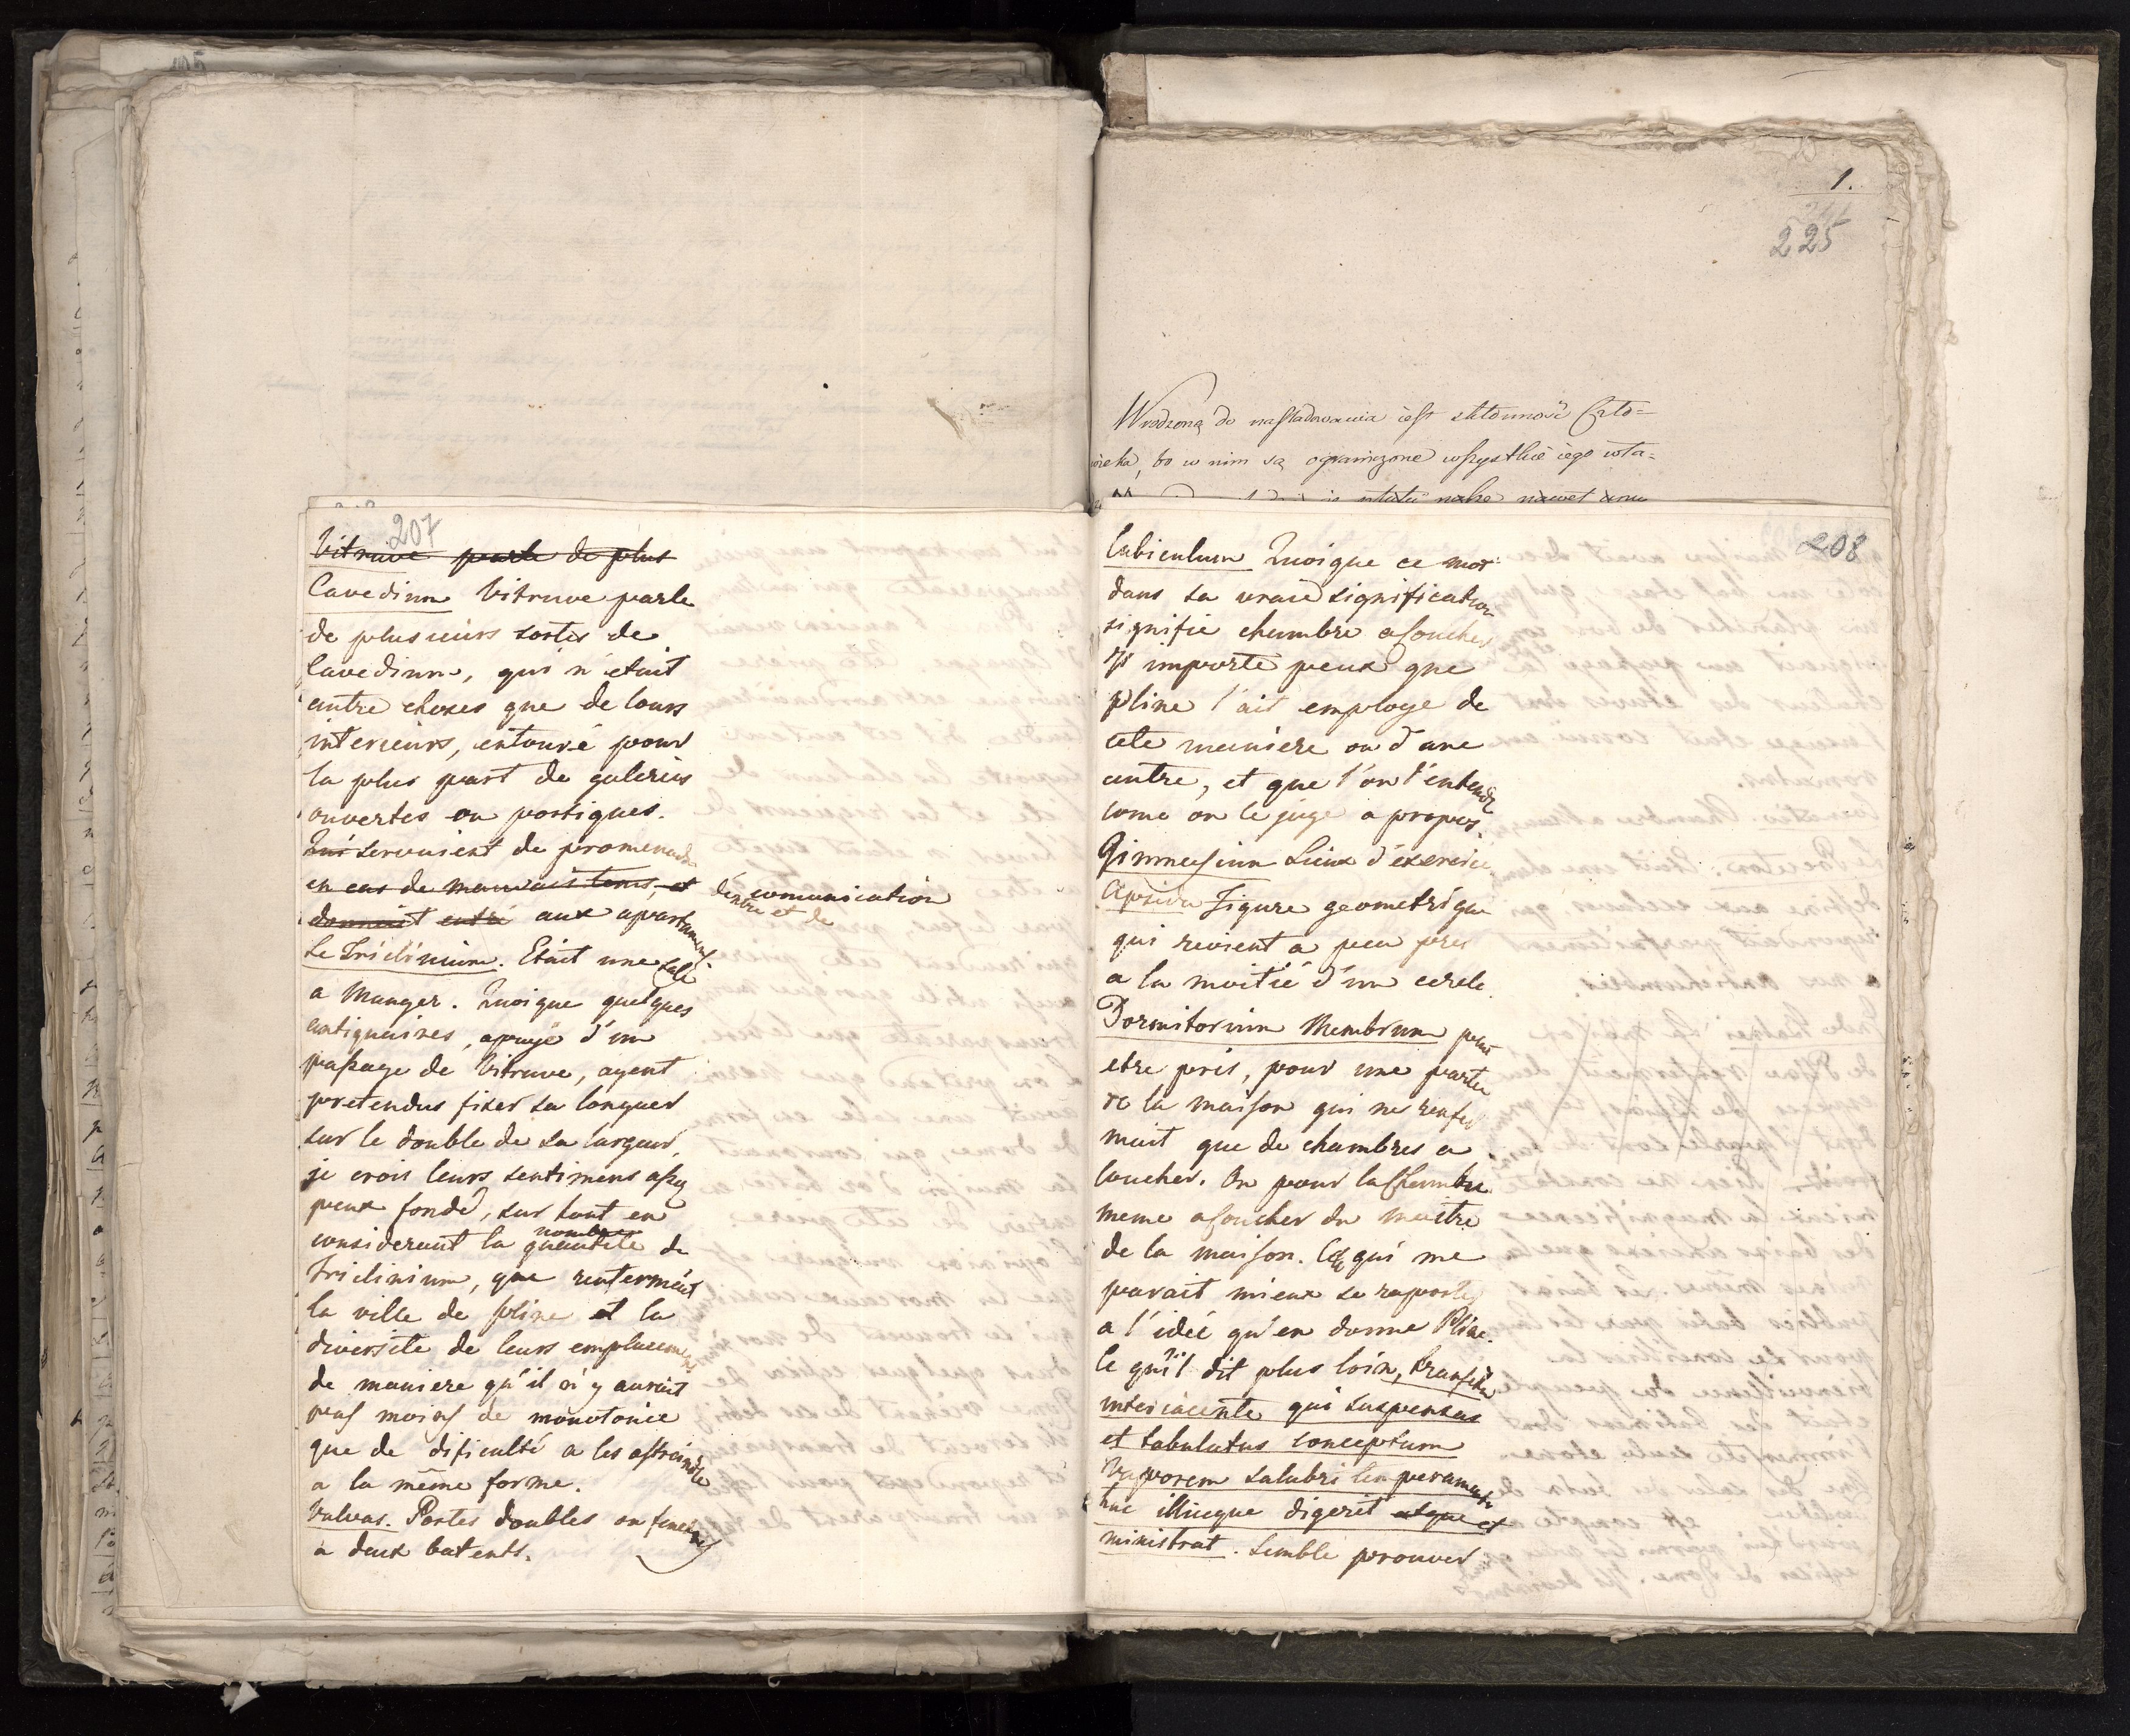 207
Vitruve parle de plus
Cavedium Vitruve parle
de plusieurs sortes de
Cavedium, qui n'etait
autre choses que de Cours
interieurs, entouré pour
la plus part de galeries
ouvertes ou portiques.
Qui servaient de promenade
en cas de mauvais tems, et
d'entre comunication
et de
donnait entré aux apartumens.
Le Triclinium. Etait une sale
a Manger. Quoique quelques
antiquaires, apuyé d'un
passage de Vitruve, ayent
pretendus fixer sa longuer
sur le double de sa largeur,
je crois leurs sentimens assez
peux fondé, sur tout en
considerant la quantité de
nombre
Triclinium, que renfermait
la ville de pline et la
diversite de leurs emplacemens
de maniere qu'il n'y aurait
pas moins de monotonie
que de dificulté a les astraindre
a la même forme.
Valvas. Portes doubles ou fenetres
a deux batents.
1.
225
Wrodzoną do nasladowania iest skłonność Czło=
wieka, bo w nim są ograniczone wszystkie iego wła=
nawet
208
Cubiculum Quoique ce mot
dans sa vraie signification
signifie chambre a coucher
Il importe peux que
pline l'ait employe de
cete maniere ou d'une
autre, et que l'on l'entende
come on le juge a propos.
Gimnasium Lieux d'exercice
Apsida Figure geometrique
qui revient a peu pres
a la moitié d'un cercle.
Dormitorium Membrum peut
etre pris, pour une partie
de la maison qui ne renfer
mait que de chambres a
coucher. Ou pour la Chambre
meme a coucher du maitre
de la maison. Ce qui me
parait mieux se raporter
a l'idée qu'en donne Pline.
Ce qu'il dit plus loin, transitu
interiacente qui suspensus
et tabulatus conceptum
vaporem salubri temperamento
huc illucque digerit atque et
ministrat. Semble prouver